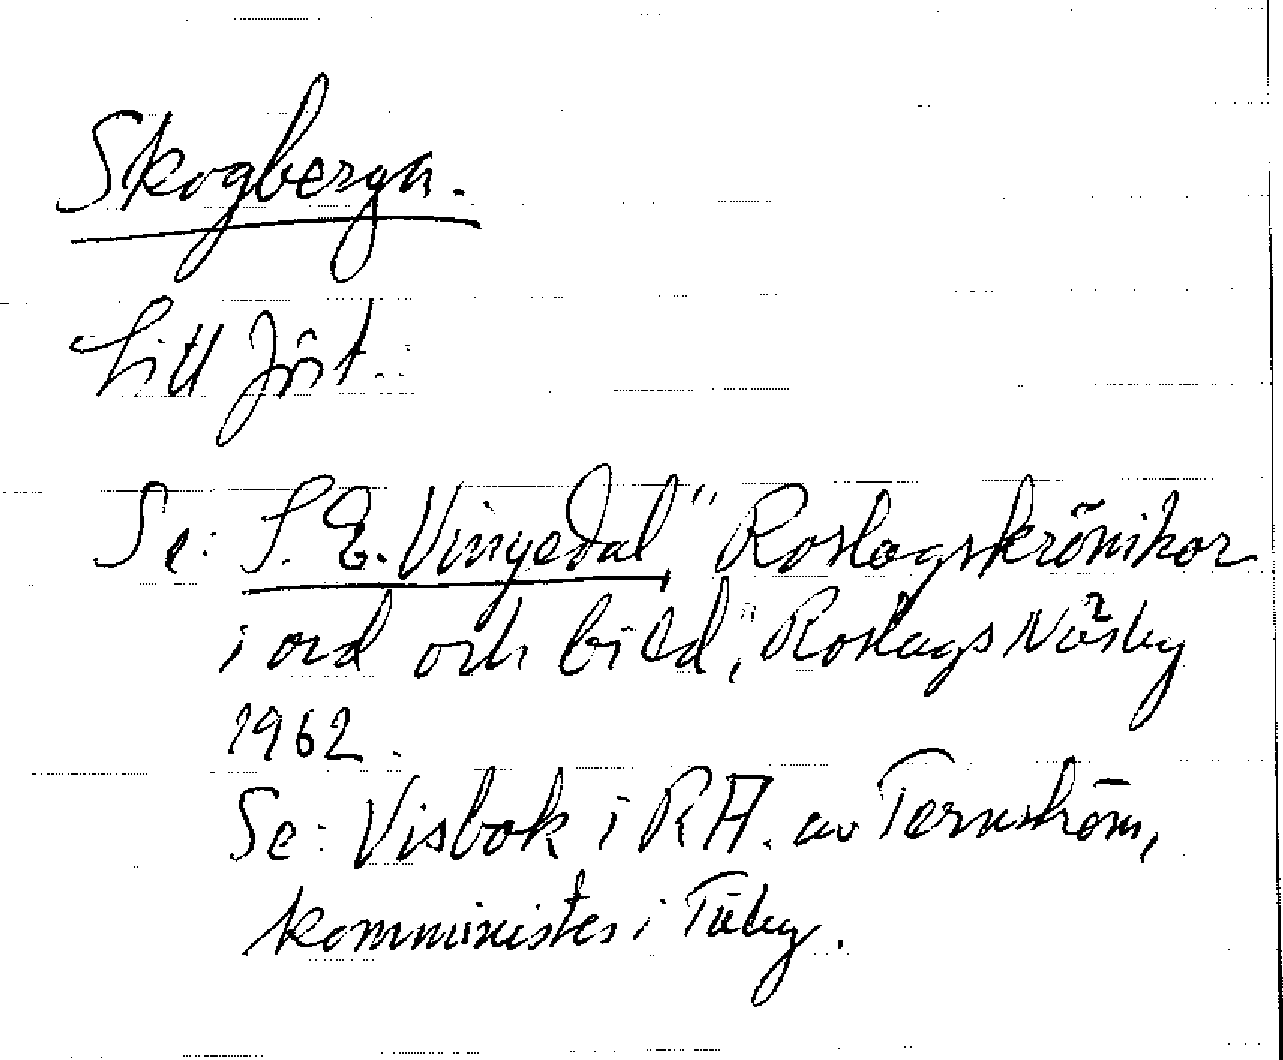 Skogberga.
Litt
Se: S. E. Vingedal, "Roslagskrönikor
i ord och bild", Roslags Näsby
1962.
Se: Visbok i RA. av Ternström,
komminister i Täby.